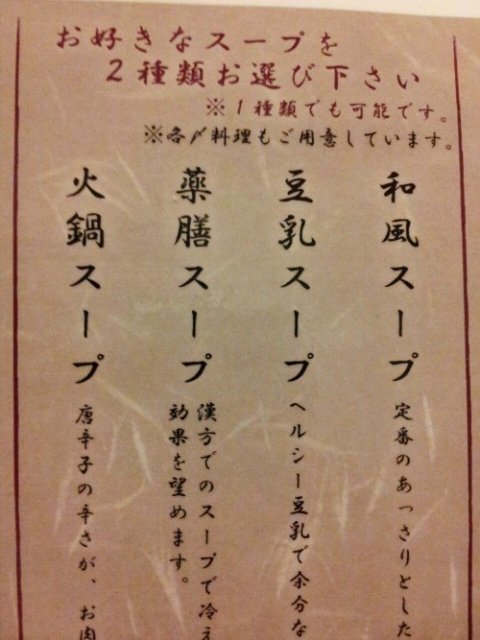 お好きなスープを
2種類お選び下さい
※1種類でも可能です。
※各〆料理もご用意しています。
和風スープ
定番のあっさりとした
豆乳スープ
ヘルシー豆乳で余分な
薬膳スープ
漢方でのスープで冷え
効果を望めます。
火鍋スープ
唐辛子の辛さが、お肉